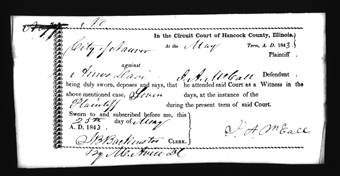 In the Circuit Court of Hancock County, Illinois.
City of Nauvoo At the May Term, A. D. 1843.
Plaintiff
against
Amos Davis J. A. McCall Defendant
being duly sworn, deposes and says, that he attended said Court as a Witness in the
above mentioned case, Seven days, at the instance of the
Plaintiff during the present term of said Court.
Sworn to and subscribed before me, this
25th day of May
A. D. 1843
J. A McCall
J B Backenstos CLERK.
By